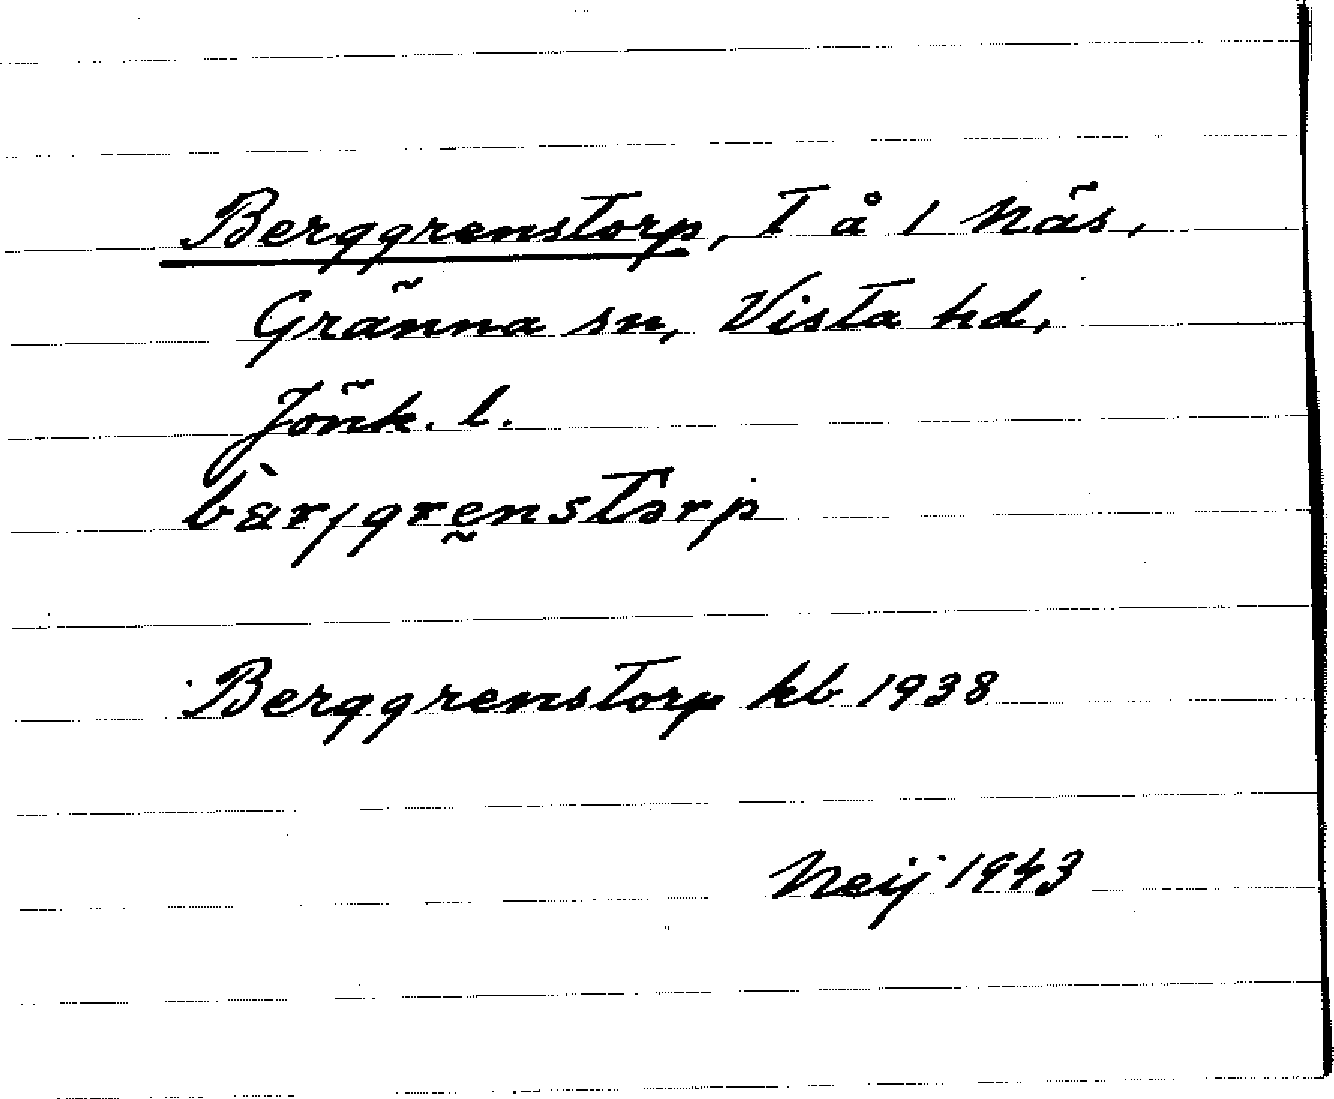 Berggrenstorp, T å 1 Näs,
Gränna sn, Vista hd,
Jönk. l.
bær/grenstorp
Berggrenstorp kb 1938
Neij 1943